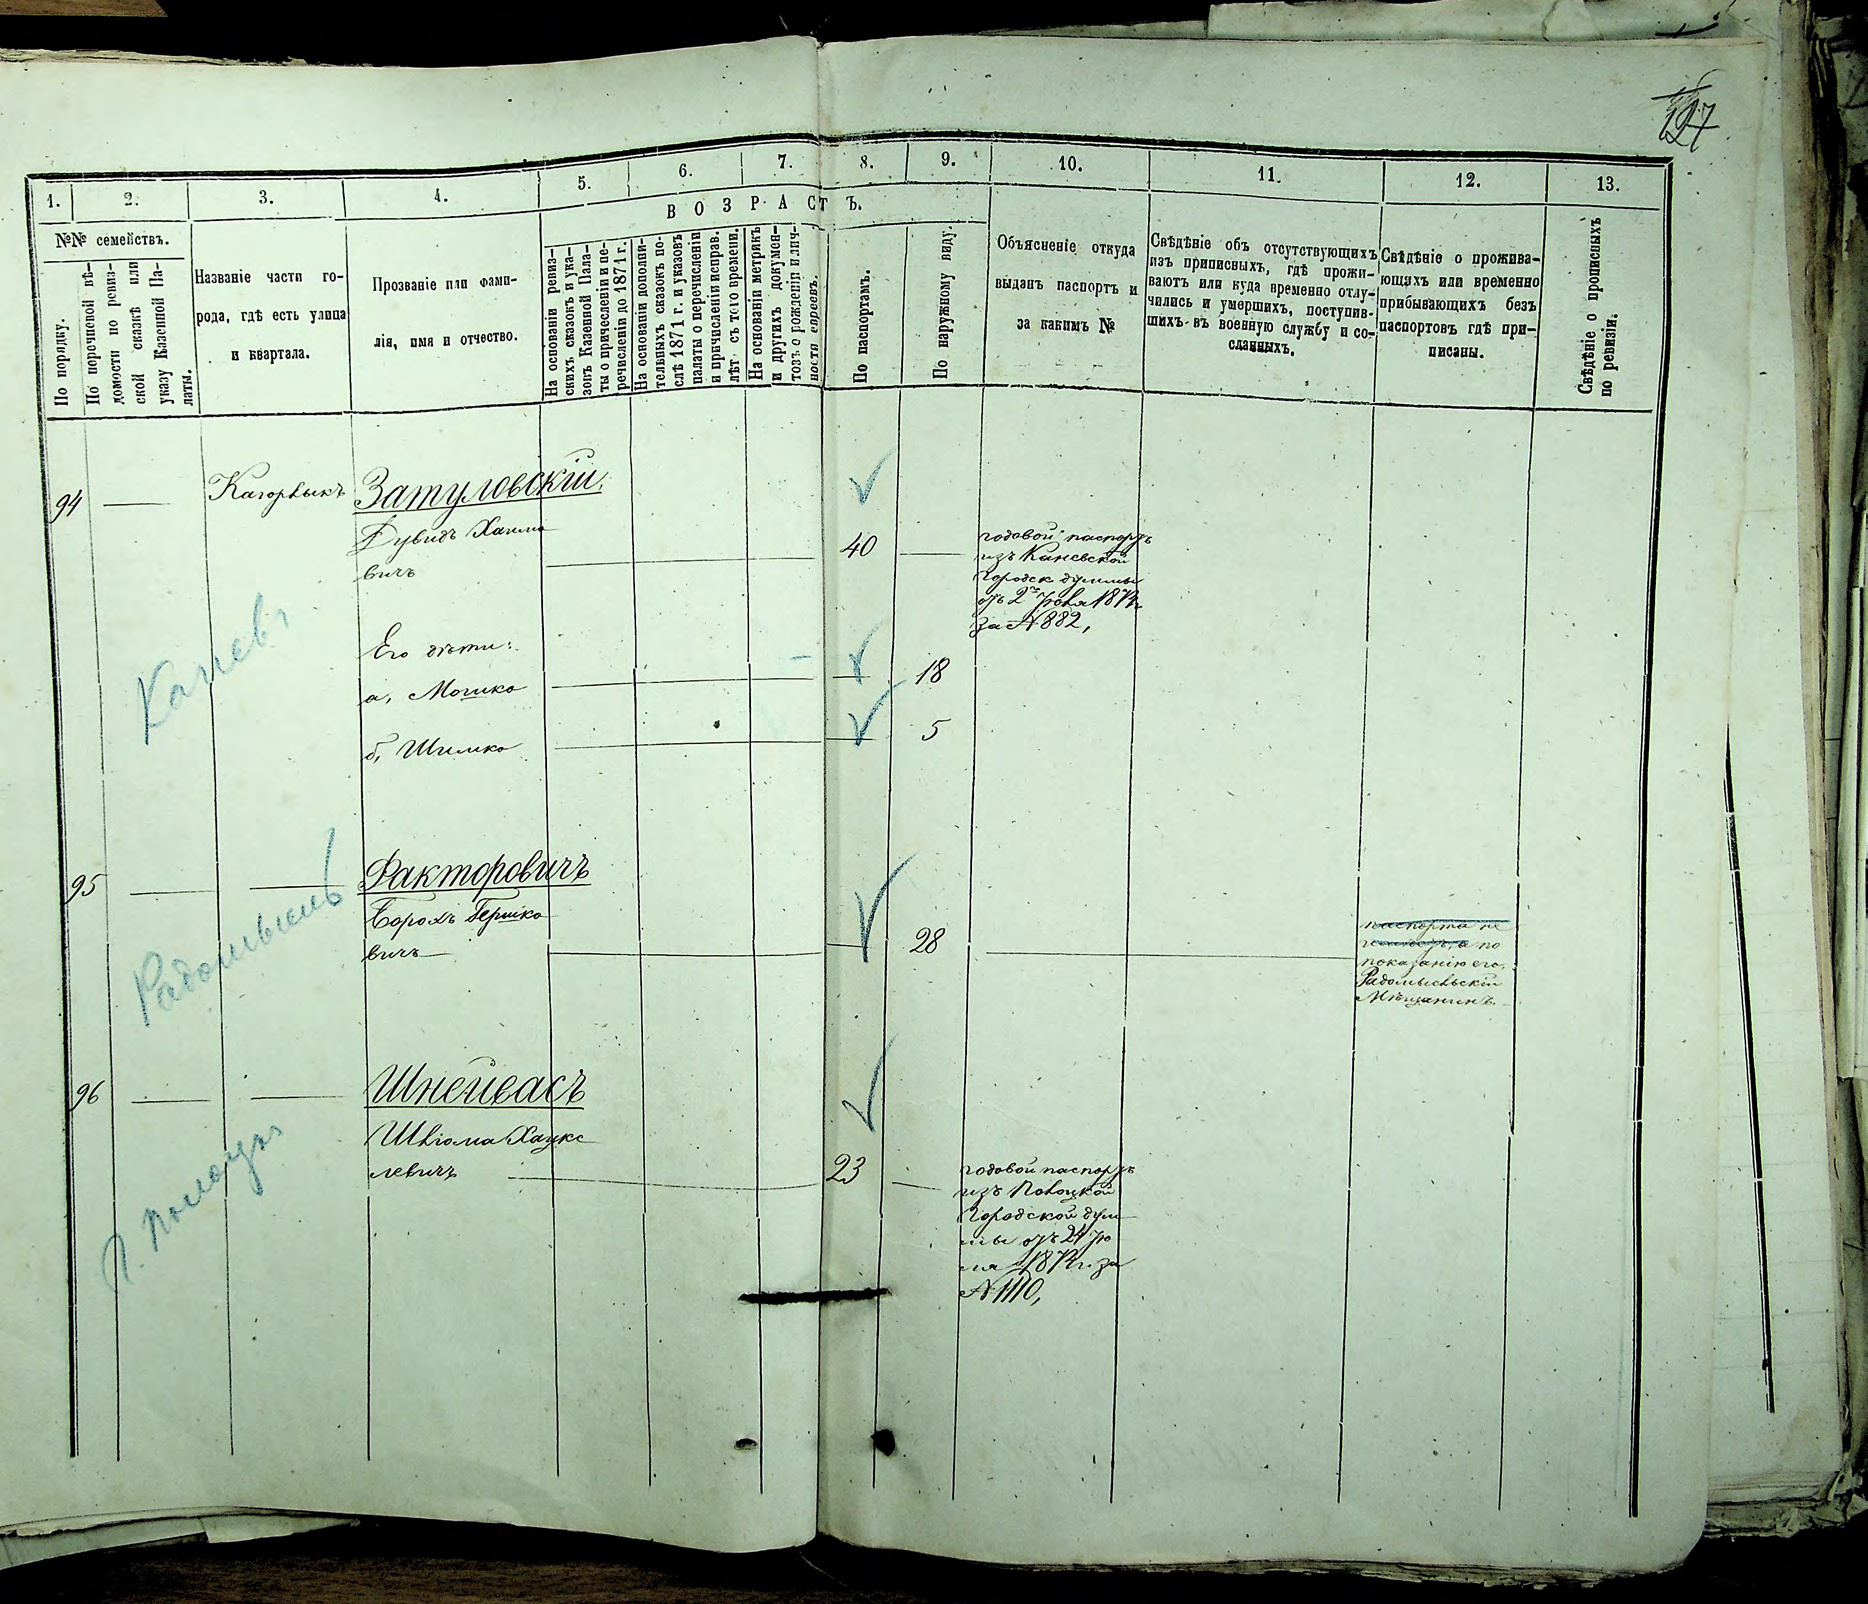 127
1.
2.
3.
4.
5.
6.
7.
8.
9.
10.
11.
12.
13.
В О З Р А С Т Ъ.
№№ семействъ.
По порядку.
По перечневой вѣ-
домости по ревиз-
ской сказкѣ или
указу Казенной Па-
латы.
Названіе части го-
рода, гдѣ есть улица
и квартала.
Прозваніе или фами-
лія, имя и отчество.
На основаніи ревиз-
скихъ сказокъ и ука-
зовъ Казенной Пала-
ты о причисленіи и пе-
речисленіи до 1871 г.
На основаніи дополни-
тельныхъ сказокъ по-
слѣ 1871 г. и указовъ
палаты о перечисленіи
и причисленіи исправ.
лѣтъ съ того времени.
На основаніи метрикъ
и другихъ докумен-
товъ о рожденіи и лич-
ности евреевъ.
По паспортамъ.
По наружному виду.
Объясненіе откуда
выданъ паспортъ и
за какимъ №
Свѣдѣніе объ отсутствующихъ
изъ приписныхъ, гдѣ прожи-
ваютъ или куда временно отлу-
чились и умершихъ, поступив-
шихъ въ военную службу и со-
сланныхъ.
Свѣдѣніе о прожива-
ющихъ или временно
прибывающихъ безъ
паспортовъ гдѣ при-
писаны.
Свѣдѣніе о прописныхъ
по ревизіи.
94
Кагорлыкъ
Затуловскій,
Дувидъ Хаимо
вичъ
40
годовой паспортъ
изъ Каневской
Городск думмы
отъ 2го
за № 882,
Каневъ
Его дѣти:
а, Мошко
18
б, Шимко
5
95
Факторовичъ
Борохъ Гершко
вичъ
28
паспорта не
имѣетъ, а по
показанію его,
Радомысльскій
Мѣщанинъ
Радомысль
96
Шнейвасъ
Шліома Хацке
левичъ
23
годовой паспортъ
изъ Полоцкой
Городской дум
мы отъ 24 Ію
ля 187 г. за
№ 1110,
Г. Полоцкъ